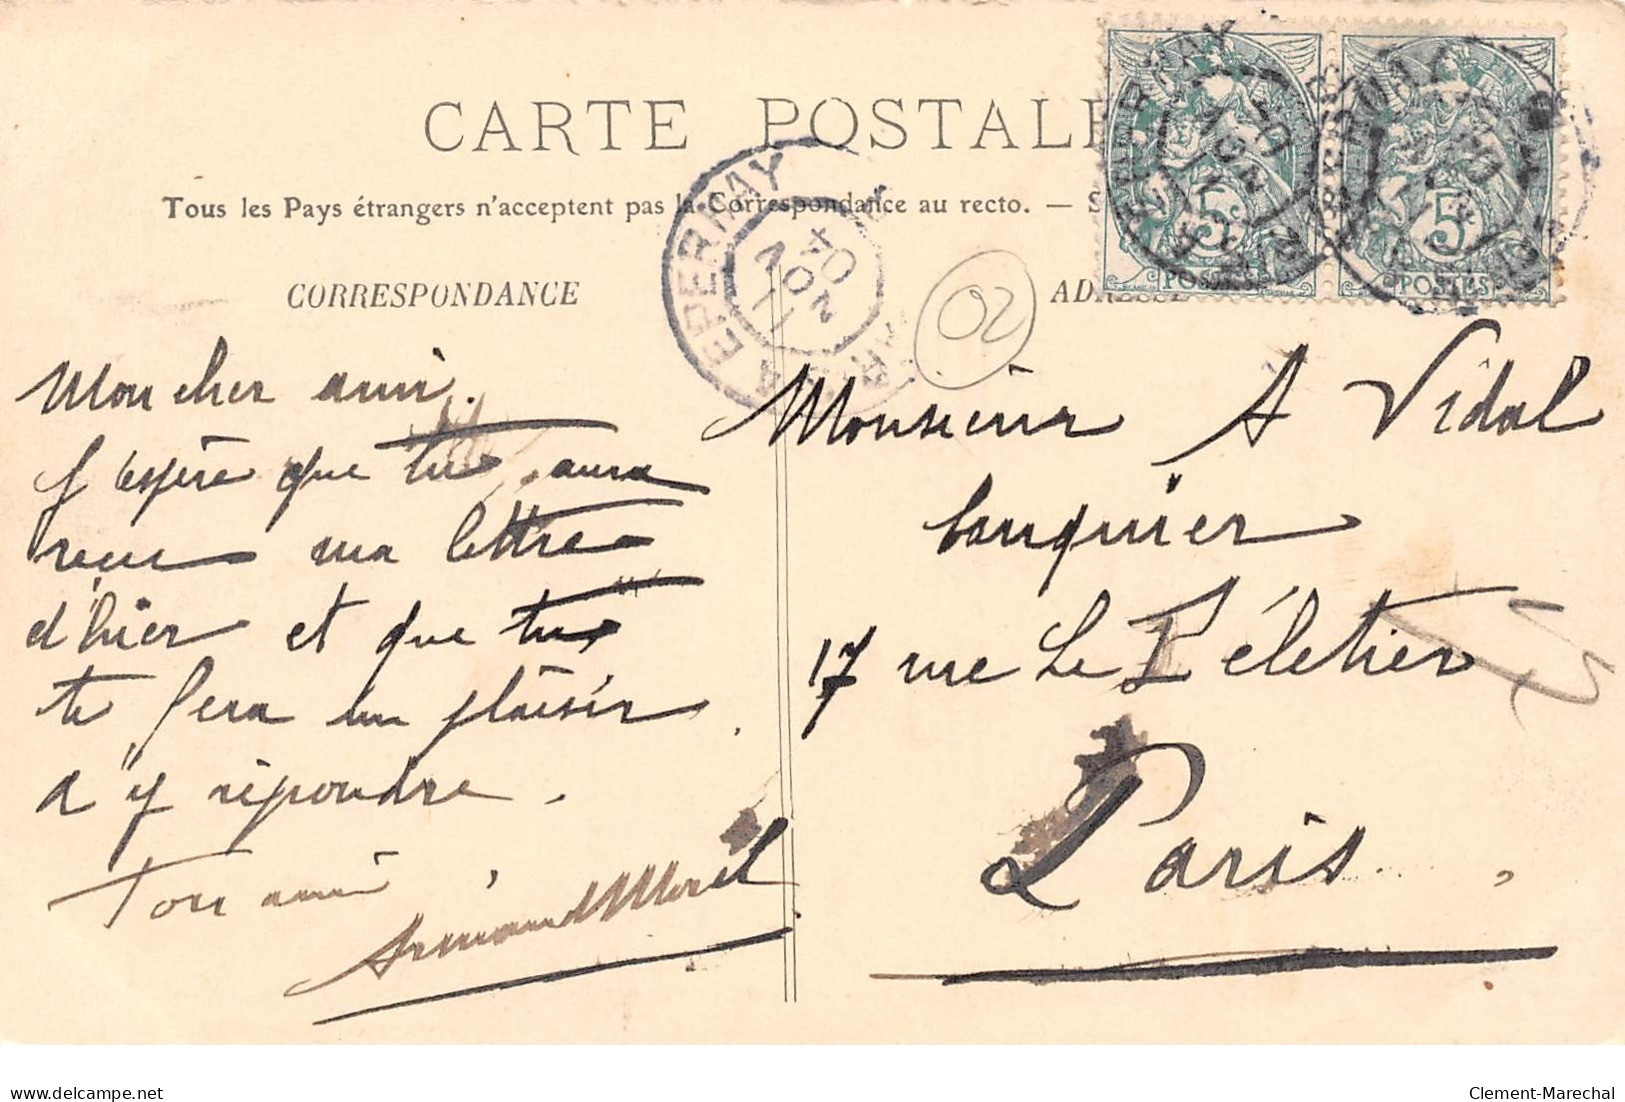 CARTE POSTALE
Tous les Pays étrangers n'acceptent pas la Correspondance au recto. — S
CORRESPONDANCE
ADRESSE
EPERNAY
NOV
04
02
5c
POSTES
5c
POSTES
Mon cher ami.
J'espère que tu aura
recu ma lettre
d'hier et que tu
te fera un plaisir
d'y répondre.
Ton ami
Armand Morel
Monsieur A Vidal
banquier
17 rue Le Péletier
Paris
delcampe.net
Clement-Marechal